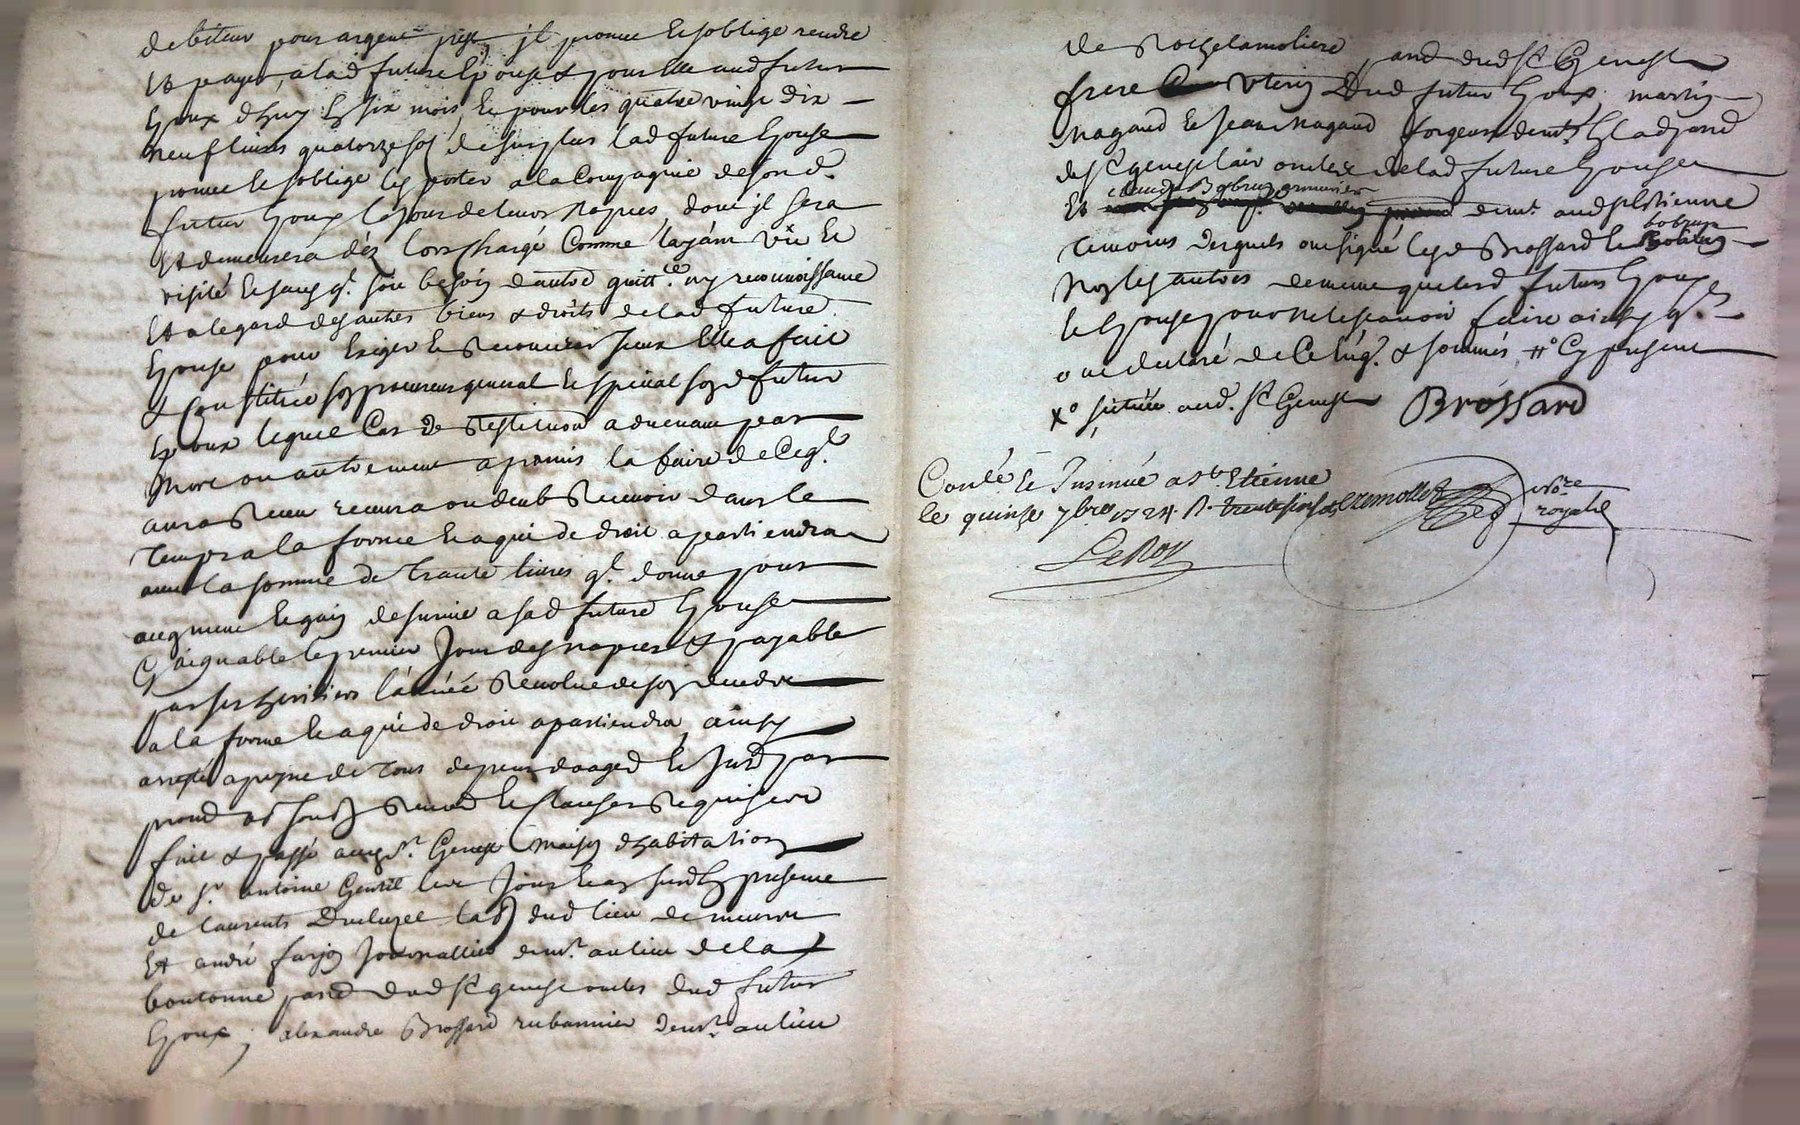 debiteur pour argent presté jl promet et soblige rendre
et payer, a lad future Epouse & pour elle aud futur
Epoux dhuy En six mois, et pour les quatre vingt dix
neuf livres quatorze sols de surplus lad future Epouse
promet et soblige les porter a la Compagnie de sond.
futur Epoux le jour de leurs nopces, dont jl sera
et demeurera dés lors chargé Comme layant vû et
visité et sans q. soit besoin dautre quitt.ce ny reconnoissance
et a legard des autres biens & droits de lad future
Epouse pour Exiger et Recouvrer jceux Elle a fait
& Constitué son procureur general et special sond futur
Epoux lequel Cas de Restitution advenant par
mort ou autrement a promis la faire de Ce q.l
aura Receu recevra ou deub Recevoir dans le
temps a la forme et a qui de droit apartiendra
avec la somme de trante livres q.l donne pour
augment et gain de survie a sad future Epouse
Gaignable le premier Jour des nopces & payable
par ses heritiers l'année Revolue de son deceds
a la forme et a qui de droit apartiendra, ainsy
arresté a peyne de tous depens domages et Jnd par
prom obl sous Renon et Clauses Requises
fait & passé aud St. Genest maison dhabitation
de Sr. antoine Gentil les Jour et an susd En presence
de Laurents Ducluzel lab dud lieu de
et andré farjon Journallier demt. au lieu de la
boutonne parr dud St genest oncles dud futur
Epoux, alexandre Brossard rubannier demt. au lieu
de Rochelamoliere parr dud St Genest
frere uterin Dud futur Epoux, martin
Magand et Jean Magand forgeurs demts En lad parr
de St genest lair oncles de lad future Epouse
claude Bobrun armurier
Et demt. aud St Estienne
bobrun
temoins desquels ont signé lesd Brossard et
Non les autres de meme que lesd futurs Epoux
et Epouse pour ne le scavoir faire ainsy q.
ont declaré de Ce Enq. & sommés, #° Cy presens
x° sittuée aud. St Genest Brossard
Conlé Et Insinué a St Etienne
le quinze 7bre 1724 R. trente six sols
nore
royal
LeRoy